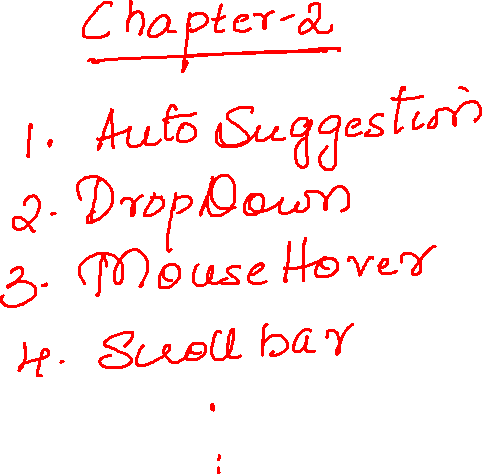 Chapter-2
1. Auto Suggestion
2. DropDown
3. MouseHover
4. Scroll bar